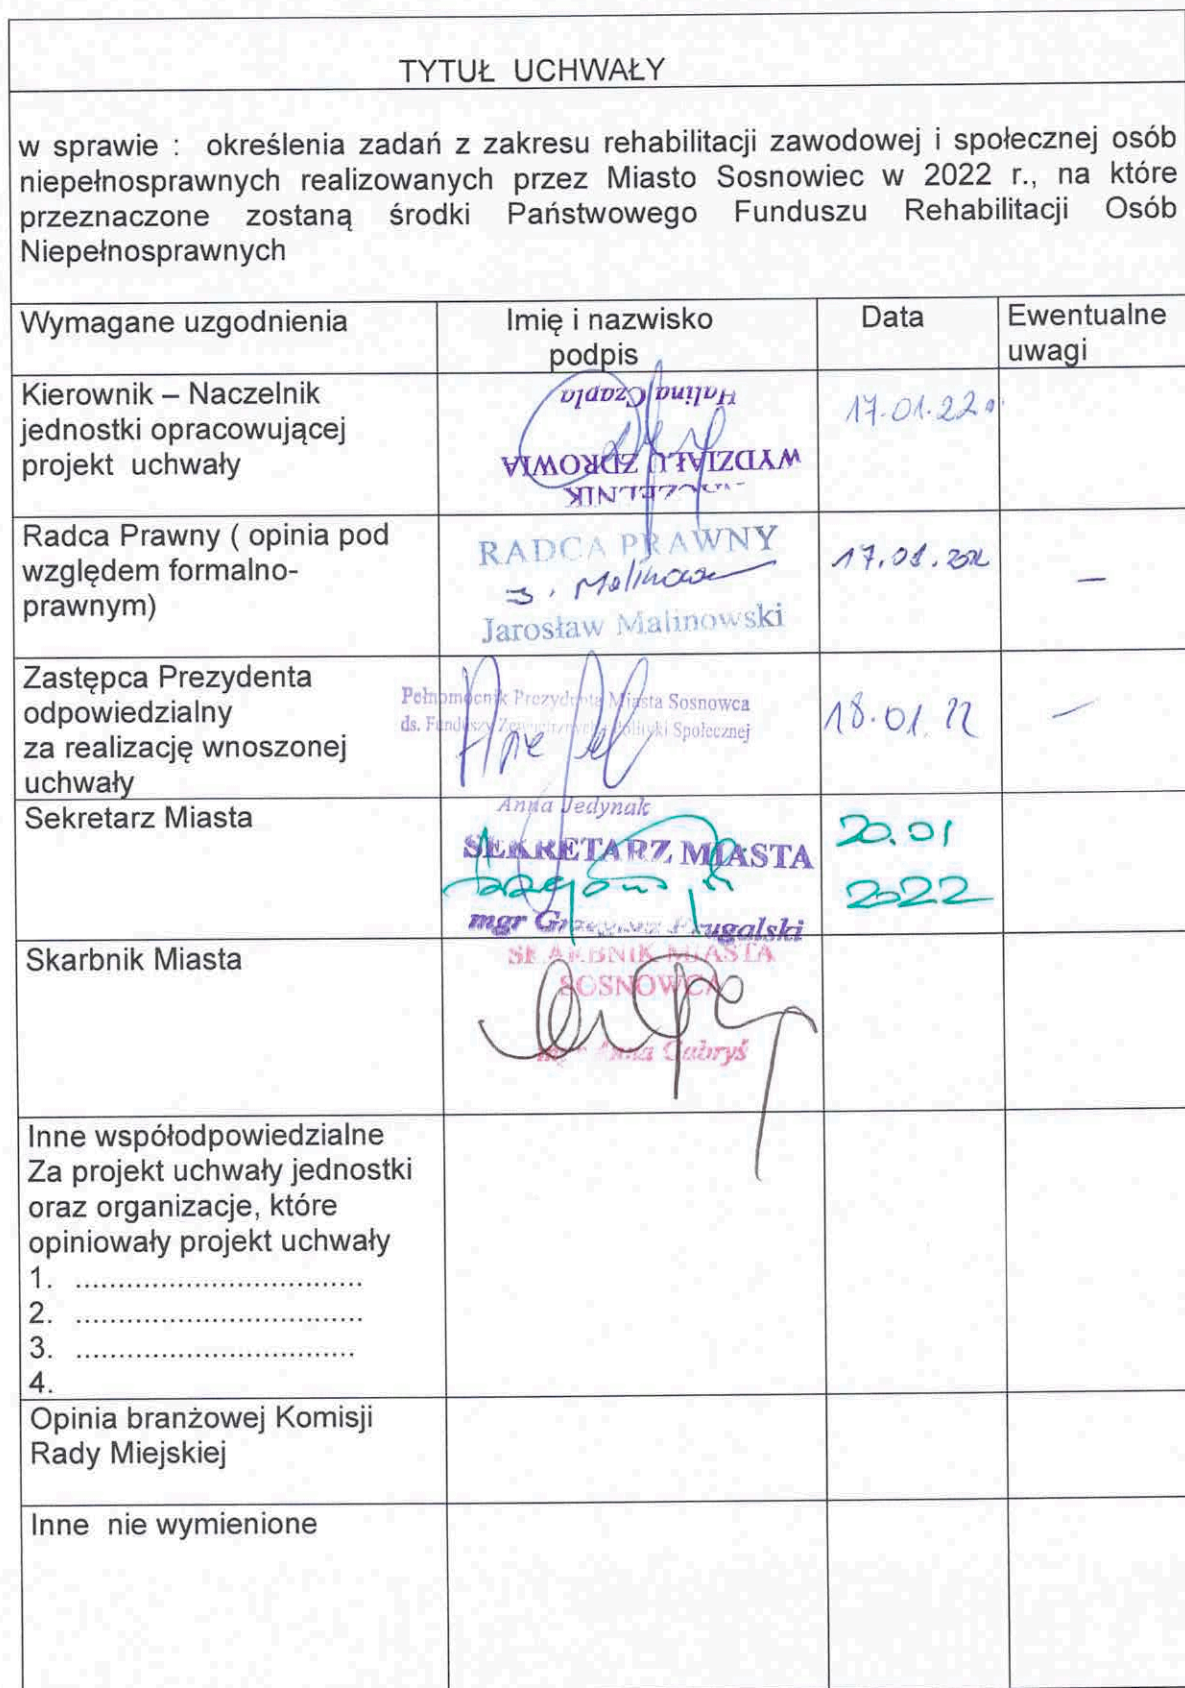 TYTUŁ UCHWAŁY
w sprawie : określenia zadań z zakresu rehabilitacji zawodowej i społecznej osób
niepełnosprawnych realizowanych przez Miasto Sosnowiec w 2022 r., na które
przeznaczone zostaną środki Państwowego Funduszu Rehabilitacji Osób
Niepełnosprawnych
Wymagane uzgodnienia
Imię i nazwisko
podpis
Data
Ewentualne
uwagi
Kierownik – Naczelnik
jednostki opracowującej
projekt uchwały
WYDZIAŁU ZDROWIA
Halina Czapla
17.01.22
Radca Prawny ( opinia pod
względem formalno-
prawnym)
RADCA PRAWNY
Jarosław Malinowski
17.01.
—
Zastępca Prezydenta
odpowiedzialny
za realizację wnoszonej
uchwały
Pełnomocnik Prezydenta Miasta Sosnowca
ds. Funduszy Zewnętrznych i Polityki Społecznej
Anna Jedynak
18.01.22
—
Sekretarz Miasta
SEKRETARZ MIASTA
mgr
20.01
2022
Skarbnik Miasta
SKARBNIK MIASTA
SOSNOWCA
mgr Anna Gabryś
Inne współodpowiedzialne
Za projekt uchwały jednostki
oraz organizacje, które
opiniowały projekt uchwały
1. ..................................
2. ..................................
3. .................................
4.
Opinia branżowej Komisji
Rady Miejskiej
Inne nie wymienione